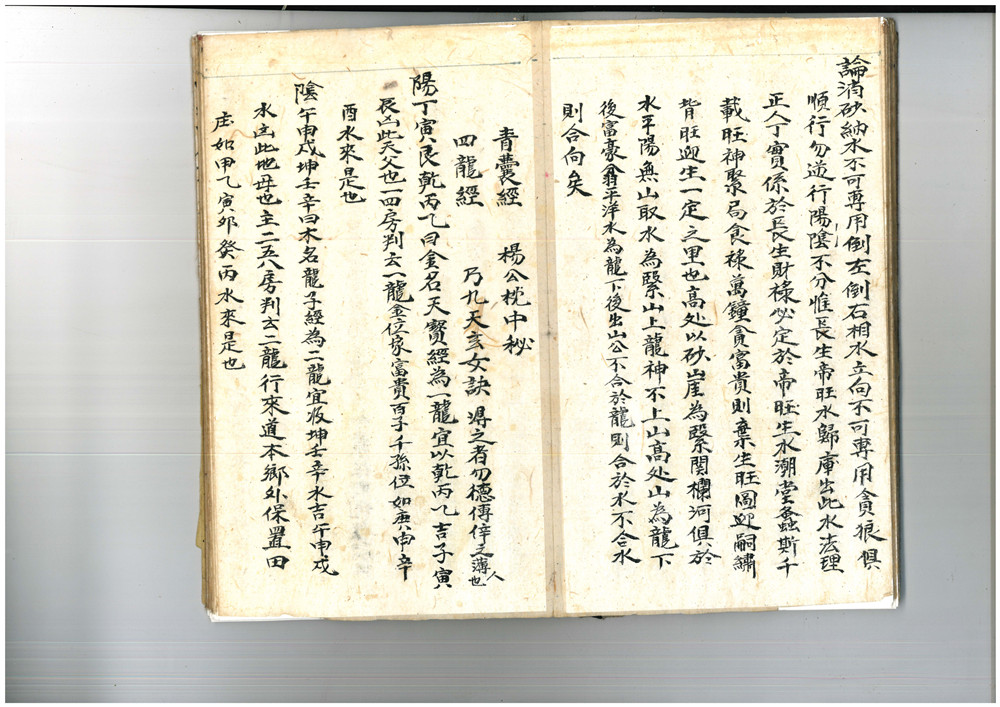 論消砂納水不可専用倒左倒右相水立向不可専用貪狼俱
順行勿逆行陽陰不分惟長生帝旺水歸庫出此水法理
正人丁實係於長生財祿必定於帝旺生水潮堂螽斯千
載旺神聚局食祿萬鐘貪富貴則棄生旺圖迎嗣續
皆旺迎生一定之里也高处以砂山崖為緊関欄河俱於
水平陽無山取水為緊山上龍神不上山高处山為龍下
後富豪翁平洋水為龍下後出山公不合於龍則合於水不合水
則合向矣
青囊經 楊公枕中秘
四龍經 乃九天玄女訣 得之者勿德傳倖之薄人也
陽丁寅艮乾丙乁曰金名天寳經為一龍宜以乾丙乁吉子寅
艮凶此天父也一四房判云一龍金位家富貴百子千孫位如庚申辛
酉水來是也
陰午申戌坤壬辛曰木名龍子經為二龍宜收坤壬辛水吉午申戌
水凶此地母也主二五八房判云二龍行來道本鄉外保置田
庄如甲乁寅卯癸丙水來是也